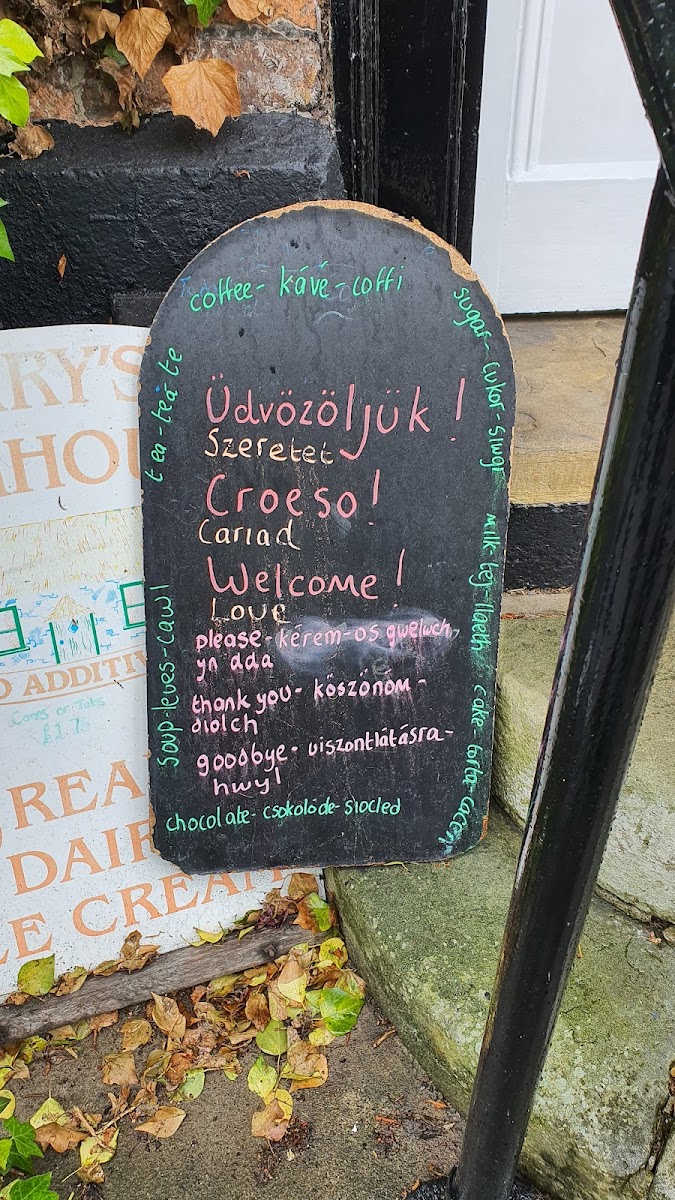 coffee - kávé - coffi
sugar - cukor - siwgr
tea - teá te
Üdvözöljük!
Szeretet
Croeso!
Cariad
Welcome!
Love
please - kérem - os gwelwch
yn dda
thank you - köszönöm -
diolch
goodbye - viszontlátásra -
hwyl
milk - tej - llaeth
soup - leves - cawl
cake - torta - cacen
chocolate - csokoláde - siocled
RY'S
AHOU
O ADDITIV
Cones or Tubs
£1.75
REA
DAIR
LE CREA